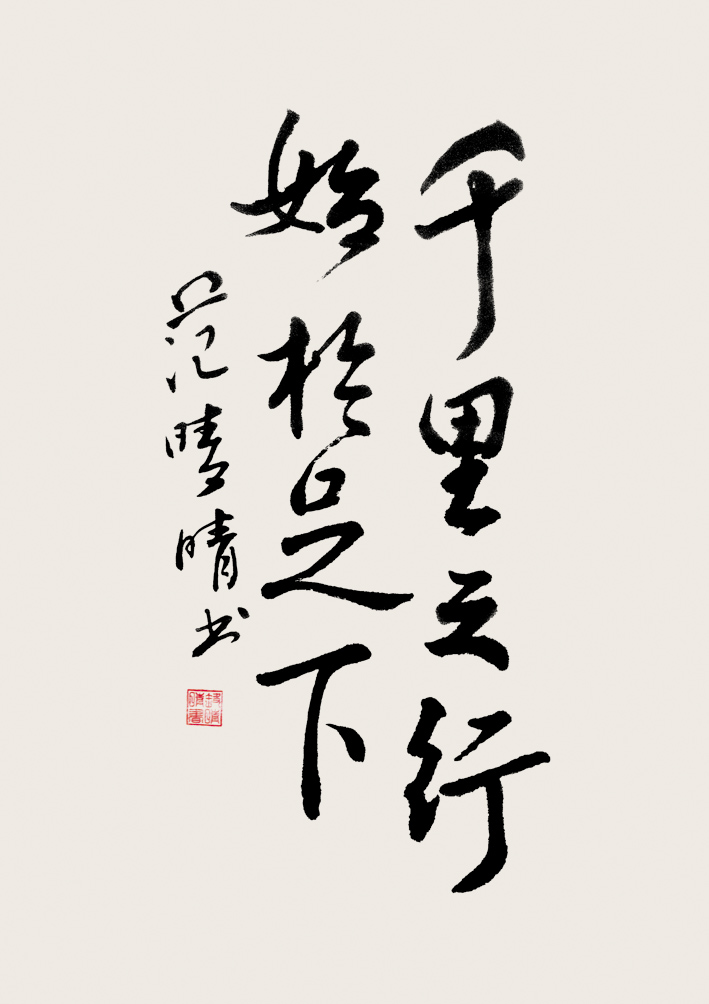 千里之行
始於足下
范晴晴书